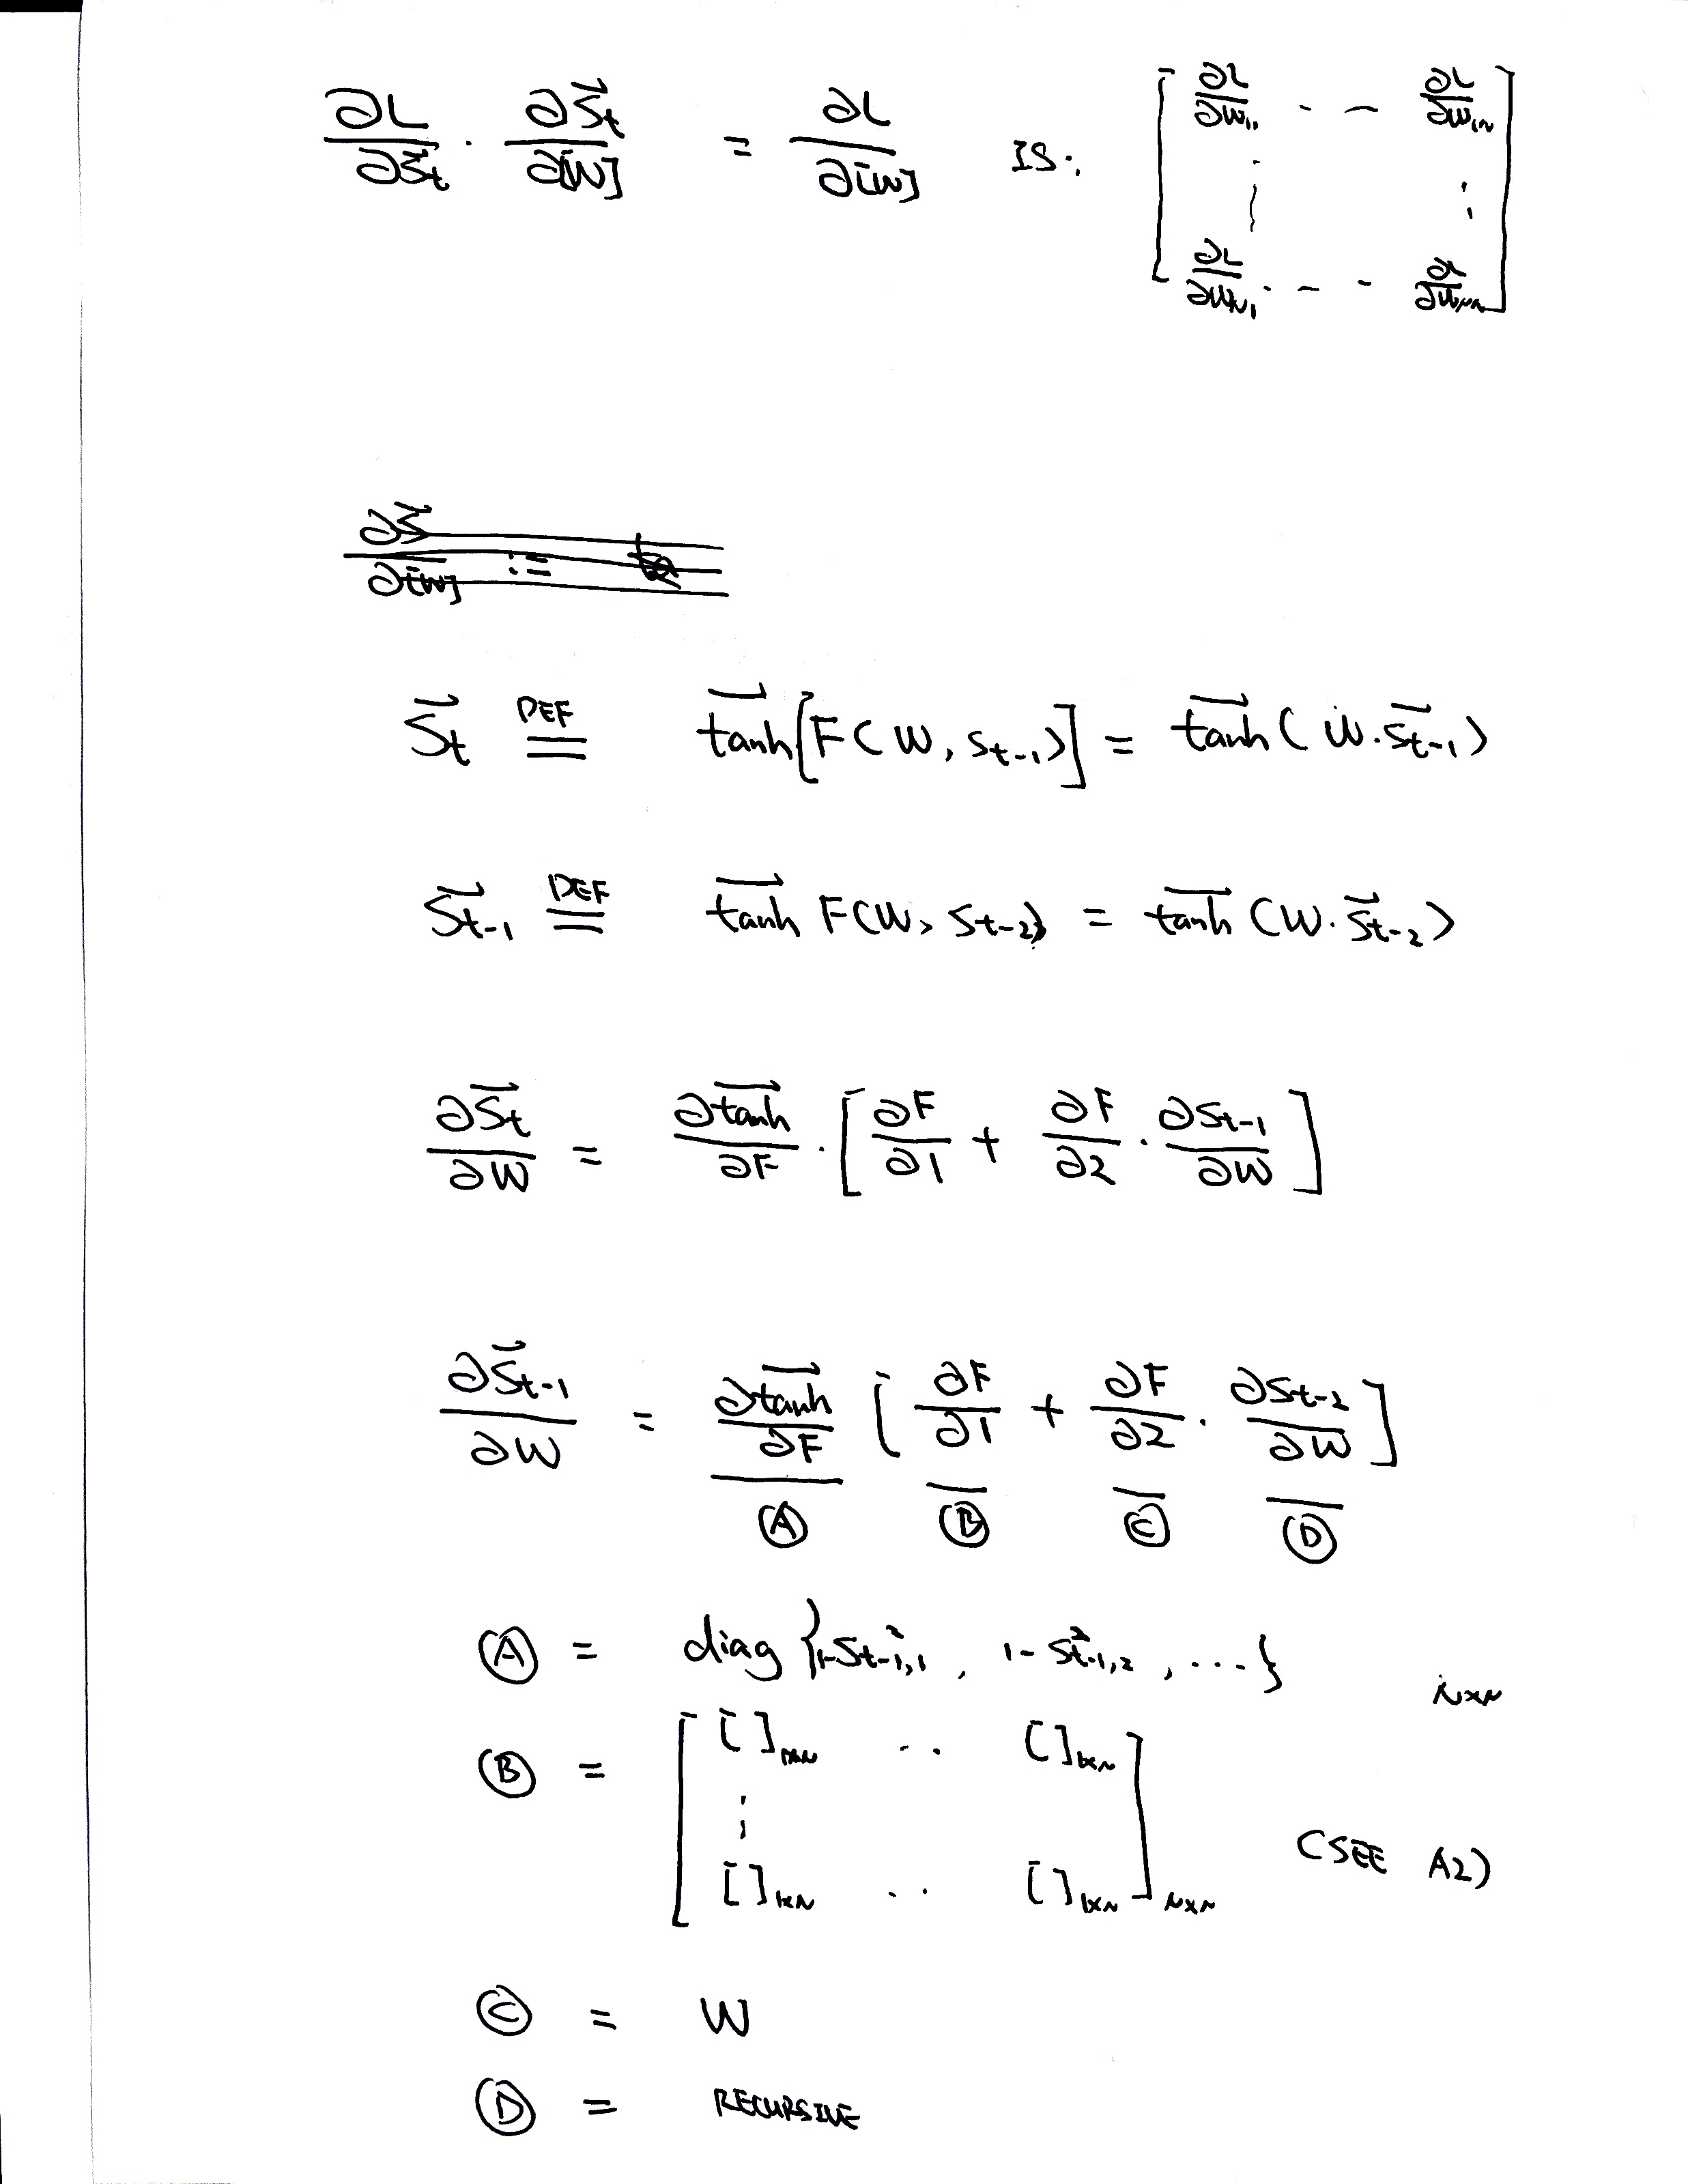 ∂L/∂S⃗t · ∂S⃗t/∂[W] = ∂L/∂[W] IS: [ ∂L/∂W11 . - - ∂L/∂W1N
⋮ ⋮
∂L/∂WN1 . - - ∂L/∂WNN ]
∂S⃗/∂[W] :=
S⃗t DEF= tanh[F(W, St-1)] = tanh(W·S⃗t-1)
S⃗t-1 DEF= tanh F(W, St-2) = tanh(W·S⃗t-2)
∂S⃗t/∂W = ∂tanh/∂F · [∂F/∂1 + ∂F/∂2 · ∂St-1/∂W]
∂S⃗t-1/∂W = ∂tanh/∂F [∂F/∂1 + ∂F/∂2 · ∂St-2/∂W]
Ⓐ Ⓑ Ⓒ Ⓓ
Ⓐ = diag {1-S²t-1,1 , 1-S²t-1,2 , ...} N×N
Ⓑ = [ [ ]1×N .. [ ]1×N
⋮ (SEE A2)
[ ]1×N .. [ ]1×N ]N×N
Ⓒ = W
Ⓓ = RECURSIVE